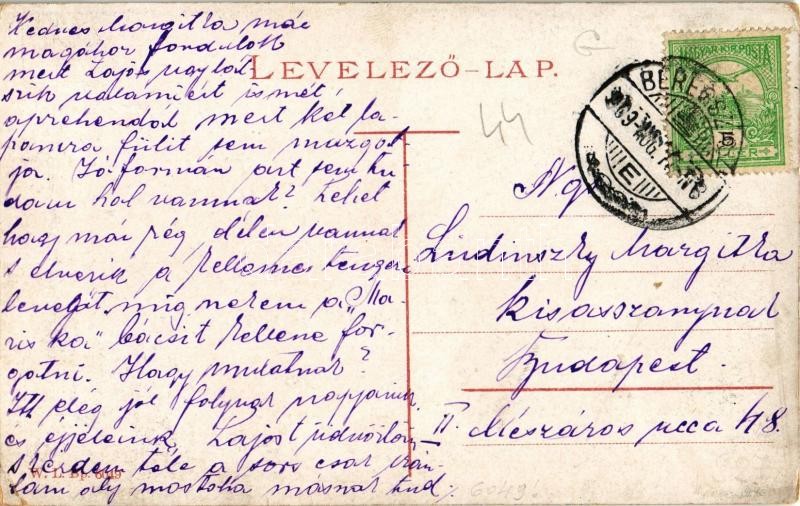 Kedves Margitka már
magához fordulok
mert Lajos úgy lát
szik valamiért ismét
aprehendál mert két la-
pomra fülit sem mozgat-
ja. Jóformán azt sem tu
dom hol vannak? Lehet
hogy már rég délen vannak
s élvezik a kellemes tenger
levegőjét, míg nekem a „Ma-
ris ka” bácsit kellene for-
gatni. Hogy mulatnak?
Itt elég jól folynak napjaink
és éjjeleink. Lajost üdvözlöm
tőle a sors csak irán-
tam oly mostoha másnak tud
LEVELEZŐ-LAP.
MAGYAR KIR. POSTA
BEREGSZ
909 AUG.
E
5
44
G
Ngs
Ludinszky Margitka
kisasszonynak
Budapest.
II Mészáros ucca 48.
W. L. Bp. 6049
6049.